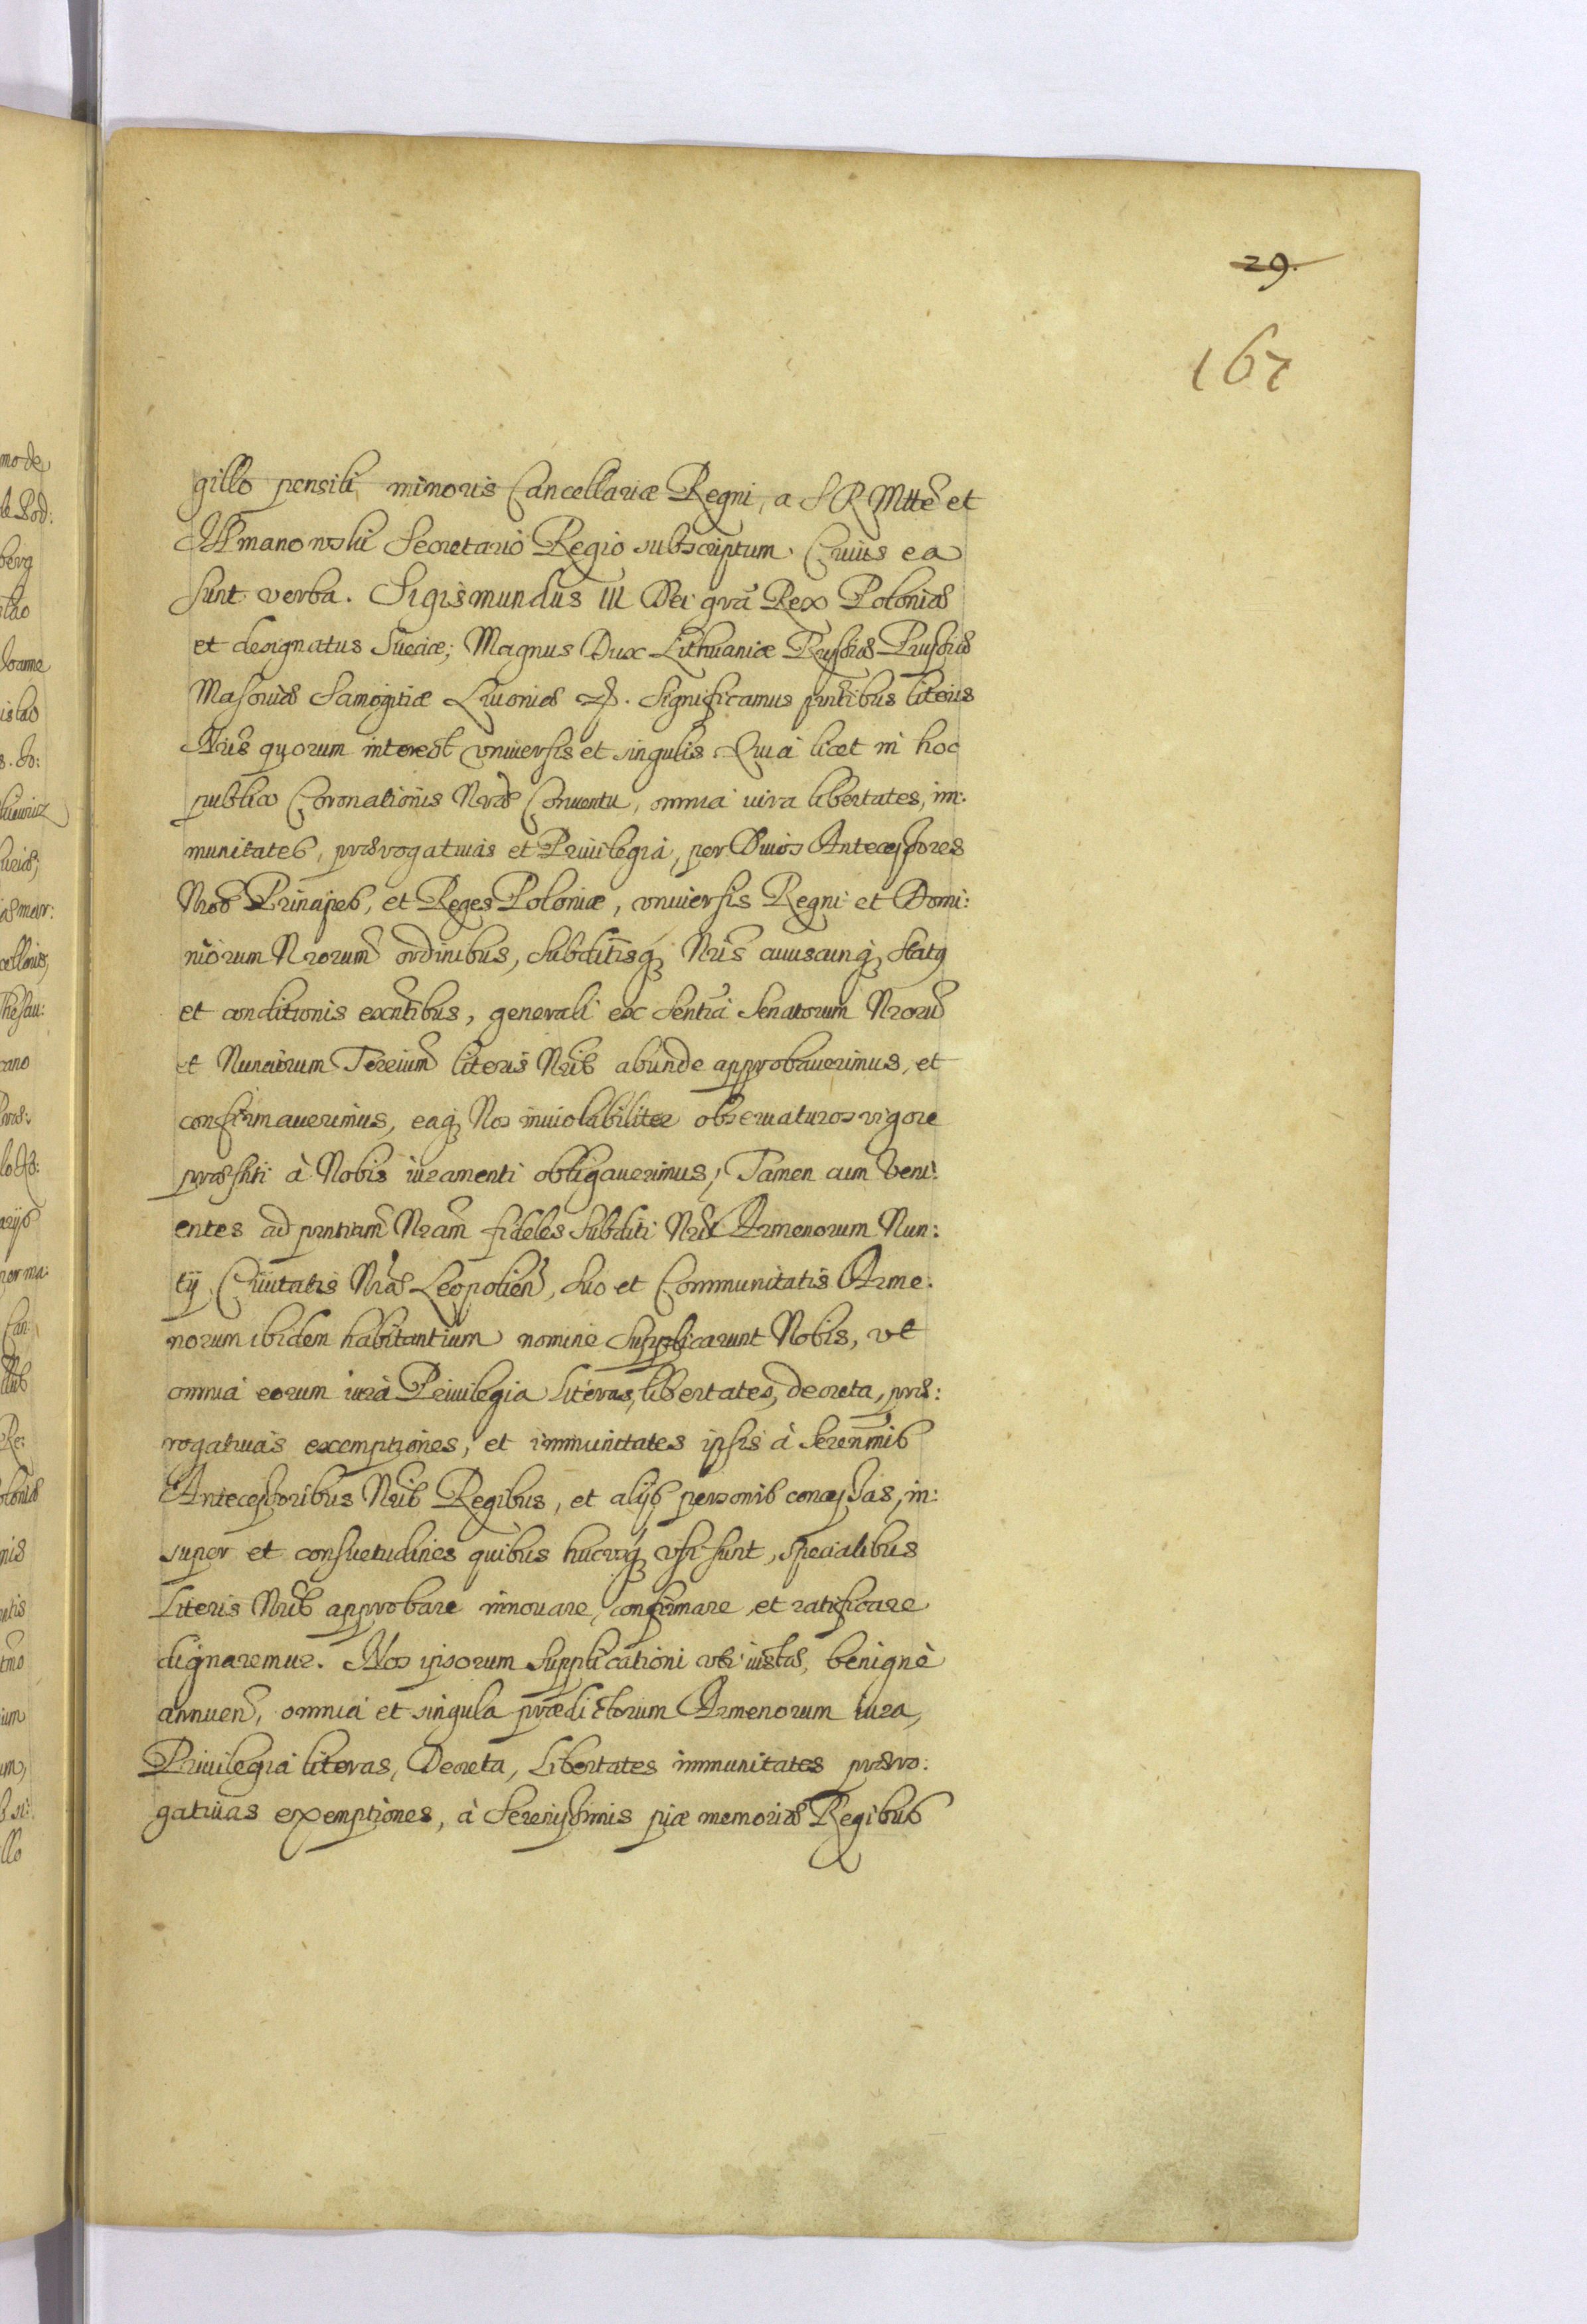 29.
167
gillo pensili minoris Cancellariæ Regni, a S R Mtte et
Vmanowski Secretario Regio subscriptum. Cuius ea
sunt verba. Sigismundus III Dei gra Rex Poloniæ
et designatus Sueciæ; Magnus Dux Lithuaniæ Russiæ Prussiæ
Masouiæ Samogitiæ Liuoniæ &. Significamus pntibus literis
Nris quorum interest vniuersis et singulis. Quia licet in hoc
publico Coronationis Nræ Conuentu, omnia iura libertates, im:
munitates, prærogatiuas et Priuilegia, per Diuos Antecessores
Nros Principes, et Reges Poloniæ, vniuersis Regni et Domi:
niorum Nrorum ordinibus, subditisq Nris cuiuscunq status
et conditionis exntibus, generali ex sentia Senatorum Nroru
et Nunciorum Terrium literis Nris abunde approbauerimus, et
confirmauerimus, eaq Nos inuiolabiliter obseruaturos vigore
præstiti à Nobis iuramenti obligauerimus, Tamen cum veni:
entes ad pntiam Nram fideles subditi Nri Armenorum Nun:
tij Ciuitatis Nræ Leopolien, suo et Communitatis Arme:
norum ibidem habitantium nomine supplicarunt Nobis, vt
omnia eorum iura Priuilegia literas, libertates, decreta, præ:
rogatiuas exemptiones, et immunitates ipsis à Serenmis
Antecessoribus Nris Regibus, et alijs personis concessas, in:
super et consuetudines quibus hucusq vsi sunt, specialibus
Literis Nris approbare innouare, confirmare et ratificare
dignaremur. Nos ipsorum supplicationi vti iustæ, benignè
annuen, omnia et singula prædictorum Armenorum iura,
Priuilegia literas, Decreta, Libertates immunitates præro:
gatiuas exemptiones, à Serenissimis piæ memoriæ Regibus